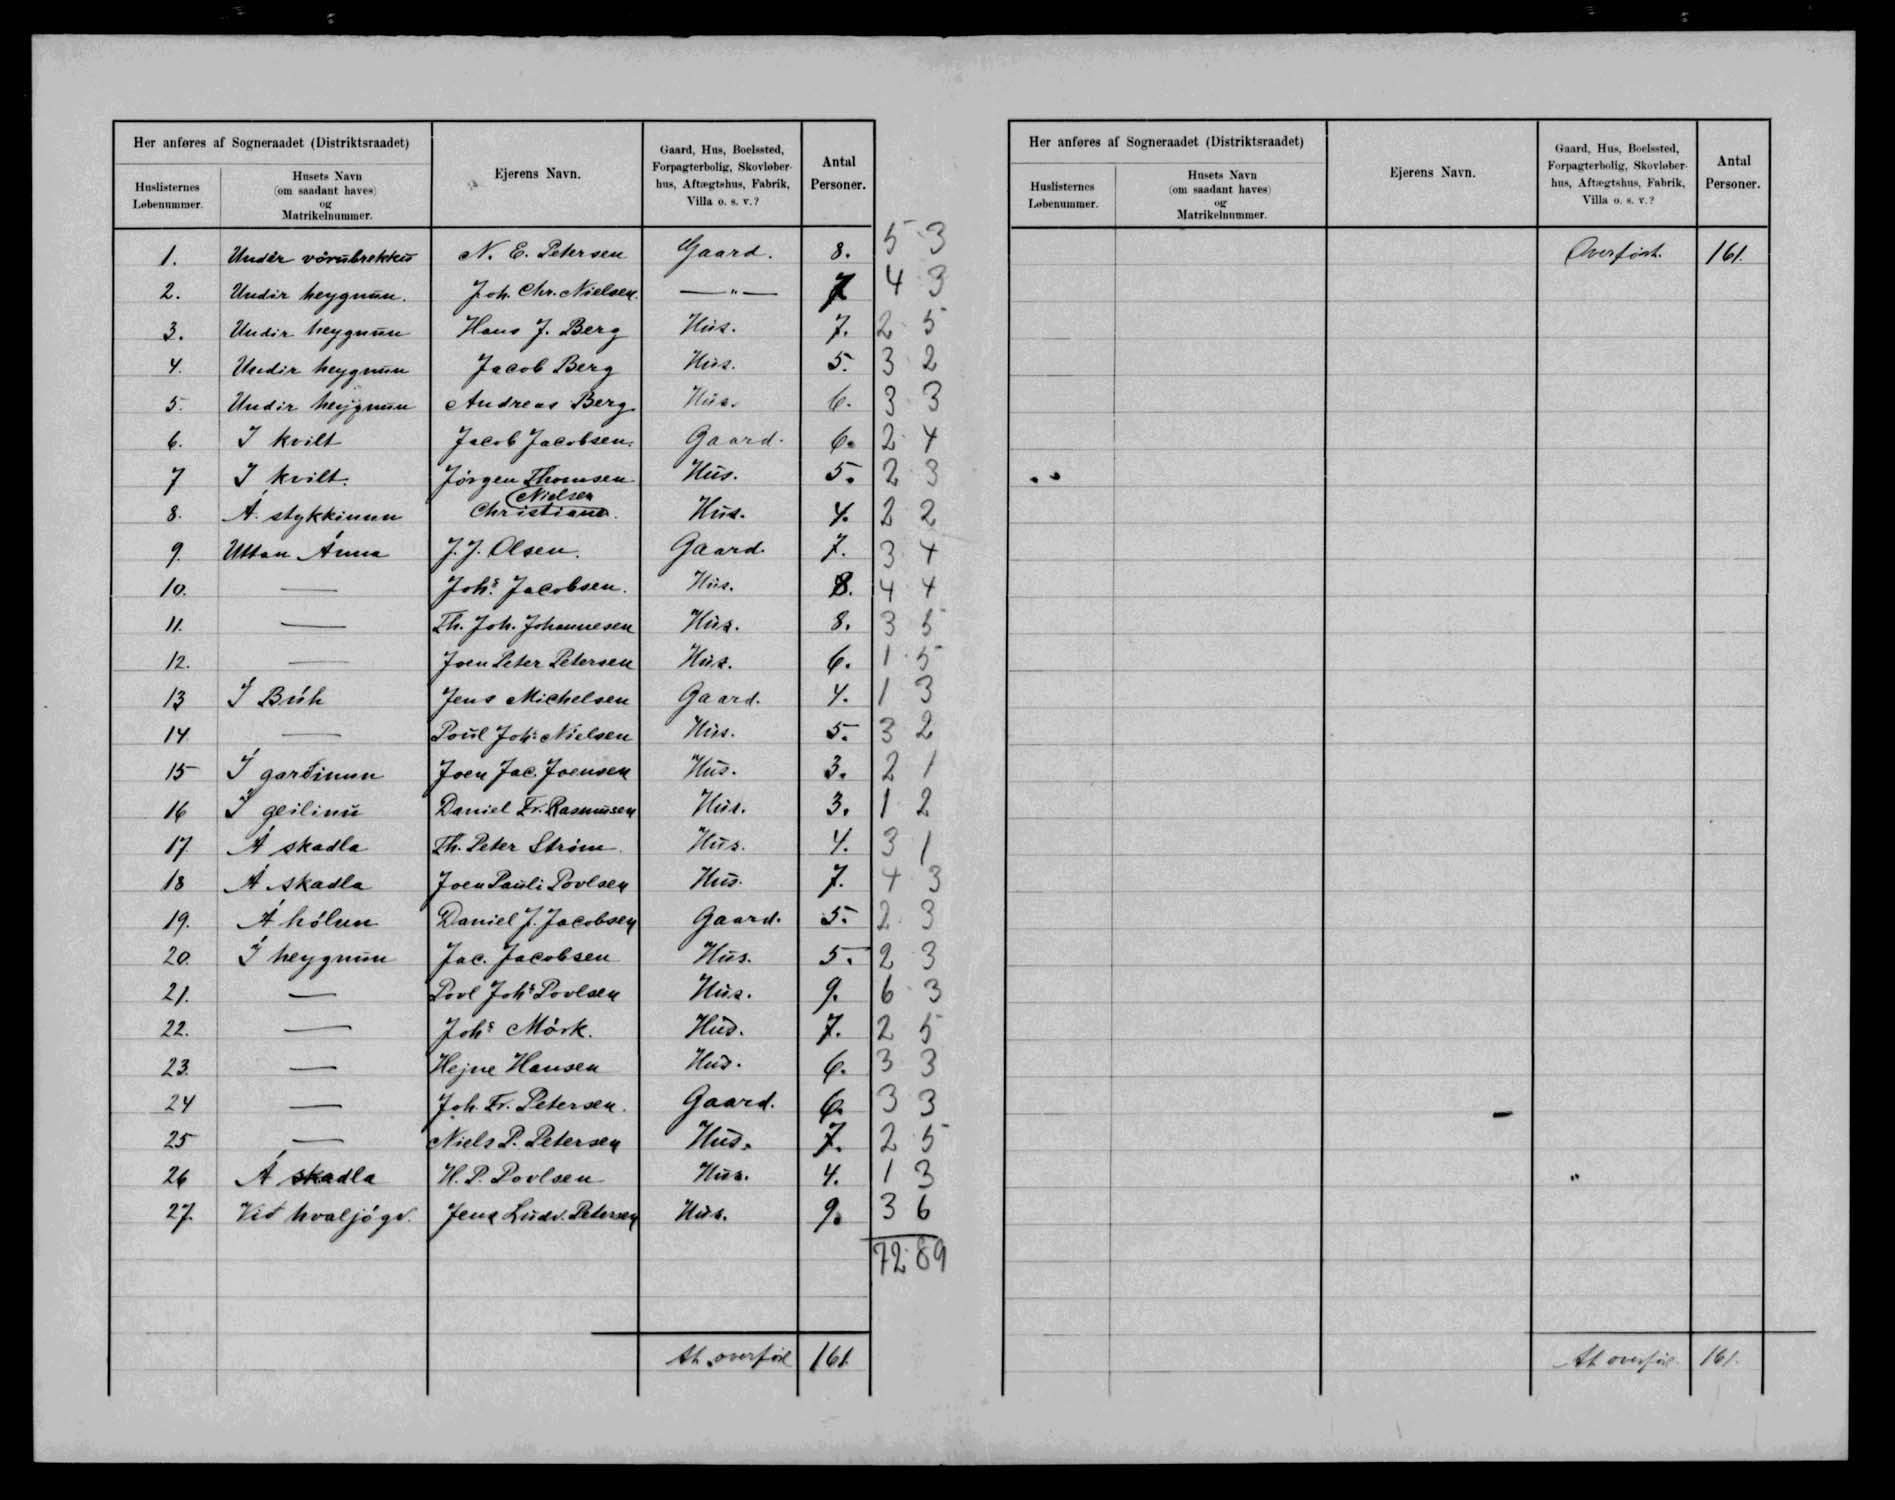 Her anføres af Sogneraadet (Distriktsraadet)
Huslisternes Løbenummer.
Husets Navn (om saadant haves) og Matrikelnummer.
Ejerens Navn.
Gaard, Hus, Boelssted, Forpagterbolig, Skovløberhus, Aftægtshus, Fabrik, Villa o. s. v.?
Antal Personer.
1. Undir vörubrekku N. E. Petersen Gaard. 8. 5 3
2. Undir heygnun. Joh. Chr. Nielsen. —"— 7 4 3
3. Undir heygnun Hans J. Berg Hus. 7. 2 5
4. Undir heygnun Jacob Berg Hus. 5. 3 2
5. Undir heygnun Andreas Berg Hus. 6. 3 3
6. I kvilt Jacob Jacobsen. Gaard. 6. 2 4
7 I kvilt. Jörgen Thomsen Hus. 5. 2 3
Nielsen
8. Á stykkinum Christiane. Hus. 4. 2 2
9. Uttan Ánna J. J. Olsen. Gaard. 7. 3 4
10. — Johs. Jacobsen. Hus. 8. 4 4
11. — Th. Joh. Johannesen Hus. 8. 3 5
12. — Joen Peter Petersen Hus. 6. 1 5
13 Í Búh Jens Michelsen Gaard. 4. 1 3
14 — Poul Johs Nielsen Hus. 5. 3 2
15 Í garðinun Joen Jac. Joensen Hus. 3. 2 1
16 Í geilinu Daniel Fr. Rasmusen Hus. 3. 1 2
17 Á skadla Th. Peter Ström Hus. 4. 3 1
18 Á skadla Joen Pauli Povlsen Hus. 7. 4 3
19. Á hólun Daniel J. Jacobsen Gaard. 5. 2 3
20. Í heygnun Jac. Jacobsen Hus. 5. 2 3
21. — Povl Johs Povlsen Hus. 9. 6 3
22. — Johs Mörk. Hus. 7. 2 5
23. — Hejne Hansen Hus. 6. 3 3
24 — Joh. Fr. Petersen. Gaard. 6. 3 3
25 — Niels P. Petersen Hus. 7. 2 5
26 Á skadla H. P. Povlsen Hus. 4. 1 3
27. Við hvaljógv. Jens Ludv. Petersen Hus. 9. 3 6
72 89
At overföre 161
Her anføres af Sogneraadet (Distriktsraadet)
Huslisternes Løbenummer.
Husets Navn (om saadant haves) og Matrikelnummer.
Ejerens Navn.
Gaard, Hus, Boelssted, Forpagterbolig, Skovløberhus, Aftægtshus, Fabrik, Villa o. s. v.?
Antal Personer.
Overfört. 161.
At overföre 161.